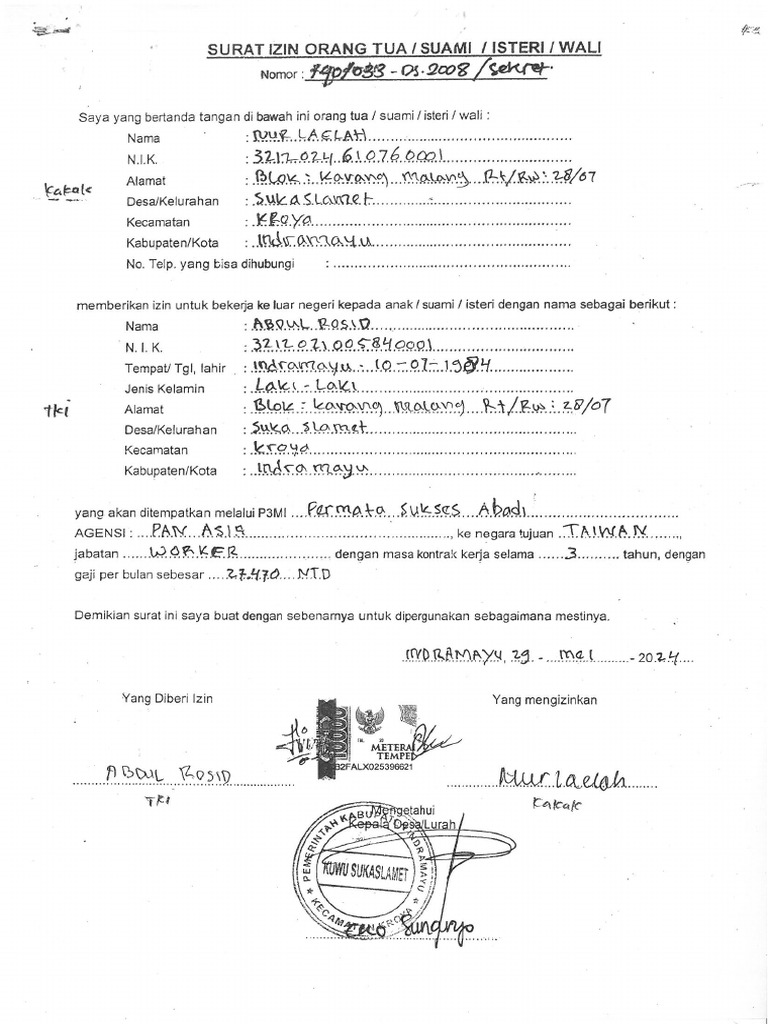 SURAT IZIN ORANG TUA / SUAMI / ISTERI / WALI
Nomor : 740/033 - DS.2008 / Sekret.
Saya yang bertanda tangan di bawah ini orang tua / suami / isteri / wali :
Nama : NUR LAELAH
N.I.K. : 3212 024 610760001
Alamat : Blok : Karang Malang Rt/Rw : 28/07
kakak
Desa/Kelurahan : Sukaslamet
Kecamatan : KRoya
Kabupaten/Kota : Indramayu
No. Telp. yang bisa dihubungi :
memberikan izin untuk bekerja ke luar negeri kepada anak / suami / isteri dengan nama sebagai berikut :
Nama : ABDUL ROSID
N. I. K. : 3212021005840001
Tempat/ Tgl, lahir : Indramayu : 10-07-1984
Jenis Kelamin : Laki - Laki
TKI
Alamat : Blok : Karang Malang Rt/Rw : 28/07
Desa/Kelurahan : Suka slamet
Kecamatan : kroya
Kabupaten/Kota : Indramayu
yang akan ditempatkan melalui P3MI Permata Sukses Abadi
AGENSI : PAN ASIA, ke negara tujuan TAIWAN,
jabatan WORKER dengan masa kontrak kerja selama 3 tahun, dengan
gaji per bulan sebesar 27.470 NTD
Demikian surat ini saya buat dengan sebenarnya untuk dipergunakan sebagaimana mestinya.
INDRAMAYU, 29 - mei - 2024
Yang Diberi Izin
Yang mengizinkan
10000
METERAI
TEMPEL
B2FALX025396621
ABDUL ROSID
TKI
Nurlaelah
Kakak
Mengetahui
Kepala Desa/Lurah
PEMERINTAH KABUPATEN INDRAMAYU
KUWU SUKASLAMET
KECAMATAN KROYA